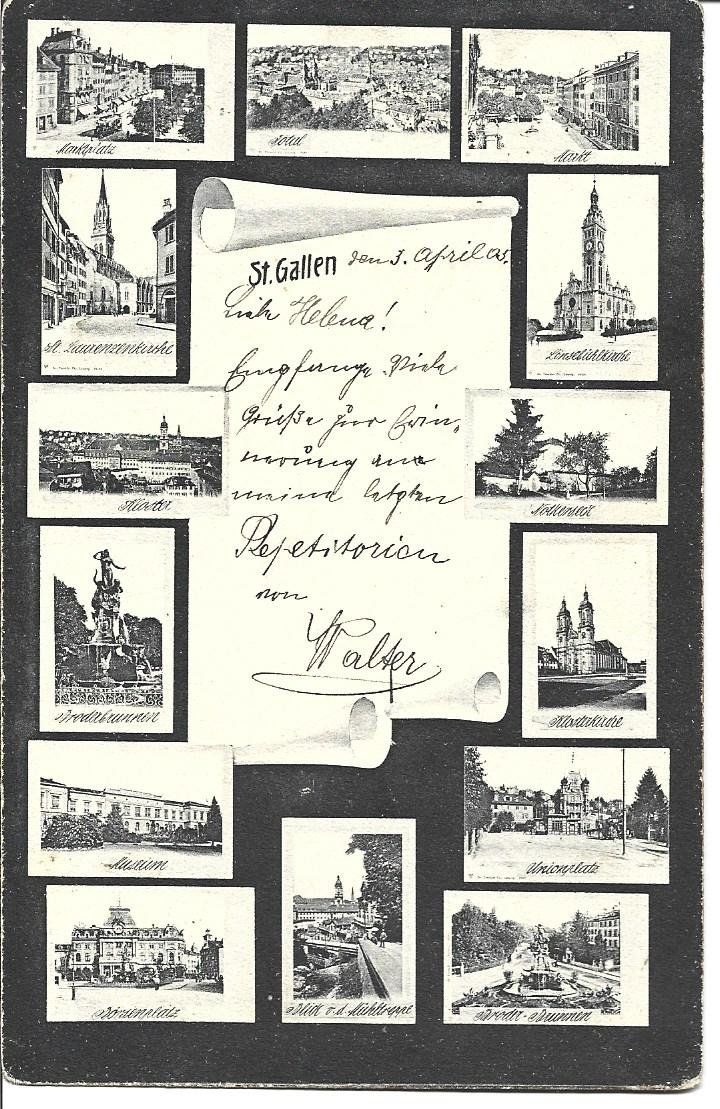 Marktplatz
Total
Markt
St. Laurenzenkirche
St. Gallen den 3. April 05.
Linsebühlkirche
Liebe Helena!
Empfange Viele
Grüße zur Erin-
nerung an
meine letzten
Repetitorien
von
Walter
Kloster
Notkerseck
Broderbrunnen
Klosterkirche
Museum
Unionplatz
Börsenplatz
Blick v. d. Mühltreppe
Broder-Brunnen